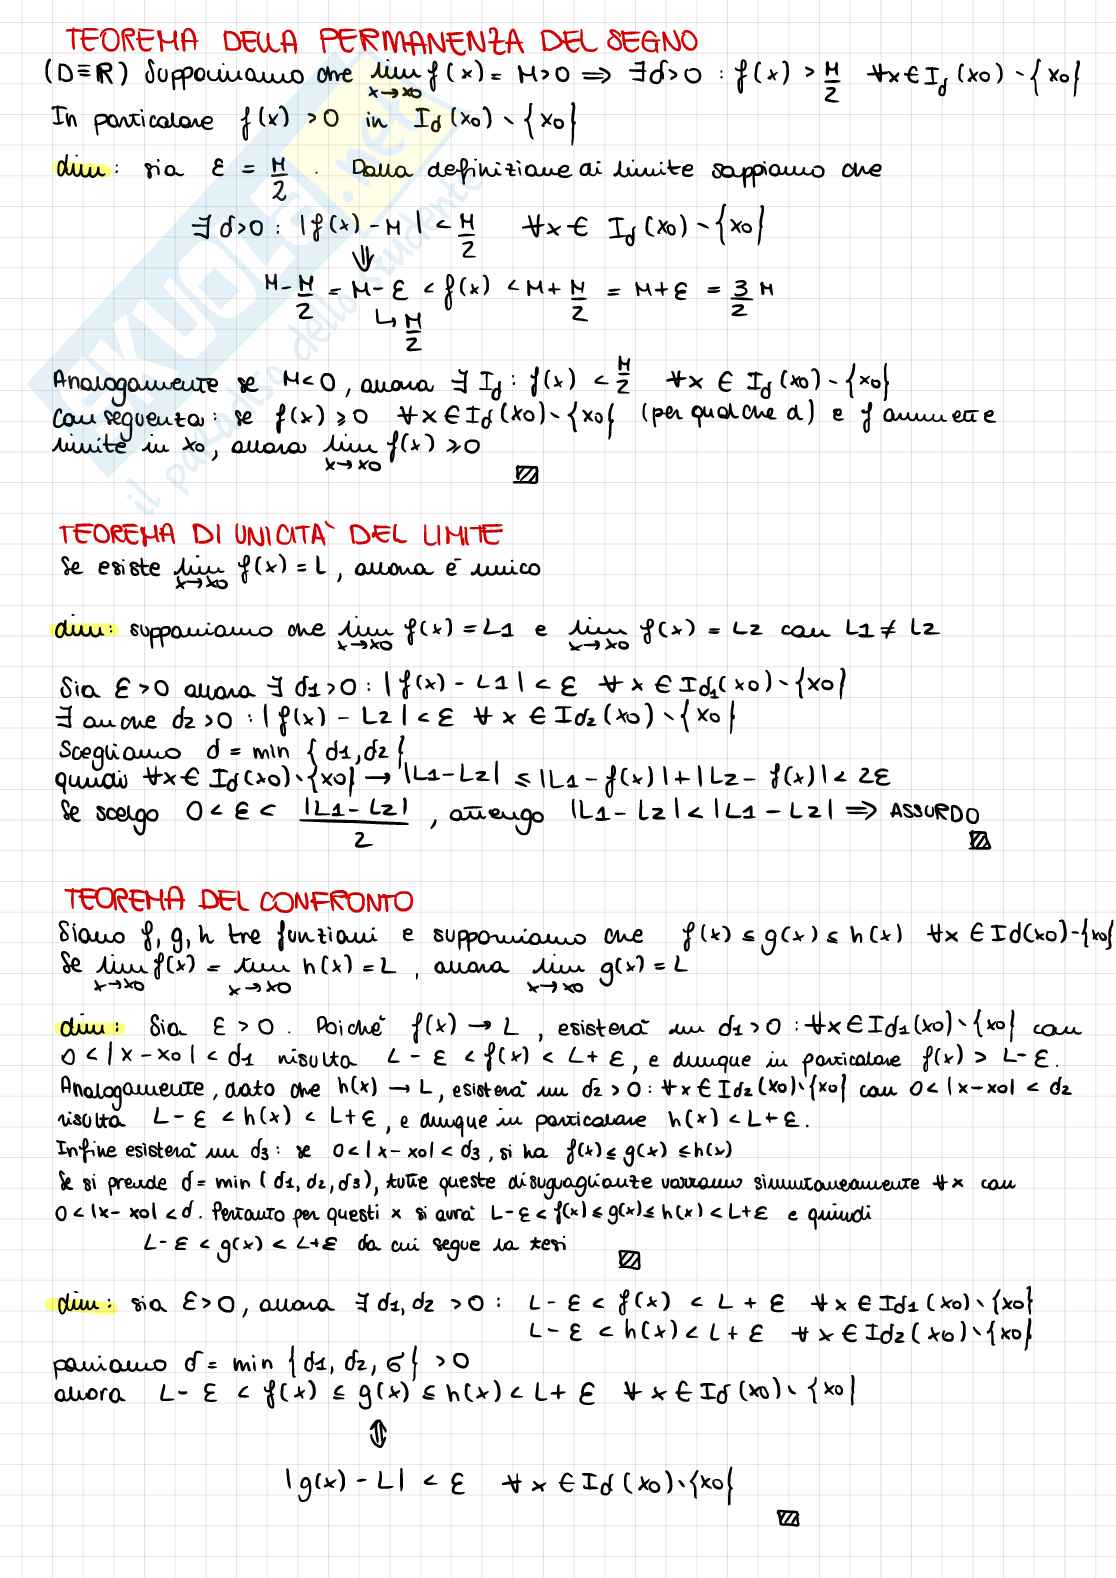 TEOREMA DELLA PERMANENZA DEL SEGNO
(D≡R) Supponiamo che lim x→x0 f(x) = M>0 ⟹ ∃d>0 : f(x) > M/2 ∀x∈Id(x0)∖{x0}
In particolare f(x) >0 in Id(x0)∖{x0}
dim: sia ε = M/2 . Dalla definizione di limite sappiamo che
∃d>0 : |f(x) - M| < M/2 ∀x∈ Id(x0)∖{x0}
⇓
M - M/2 = M - ε < f(x) < M + M/2 = M + ε = 3/2 M
↳ M/2
Analogamente se M<0, allora ∃ Id : f(x) < M/2 ∀x ∈ Id(x0)∖{x0}
Conseguenza: se f(x) ⩾ 0 ∀x∈Id(x0)∖{x0} (per qualche d) e f ammette
limite in x0, allora lim x→x0 f(x) ⩾0
TEOREMA DI UNICITA` DEL LIMITE
Se esiste lim x→x0 f(x) = L, allora é unico
dim: supponiamo che lim x→x0 f(x) = L1 e lim x→x0 f(x) = L2 con L1 ≠ L2
Sia ε>0 allora ∃ d1>0 : |f(x) - L1| < ε ∀x∈Id1(x0)∖{x0}
∃ anche d2>0 : |f(x) - L2| < ε ∀x∈Id2(x0)∖{x0}
Scegliamo d = min {d1,d2}
quindi ∀x∈ Id(x0)∖{x0} → |L1-L2| ≤ |L1-f(x)|+|L2-f(x)| < 2ε
Se scelgo 0<ε< |L1-L2|/2 , ottengo |L1-L2| < |L1-L2| ⟹ ASSURDO
TEOREMA DEL CONFRONTO
Siano f, g, h tre funzioni e supponiamo che f(x) ≤ g(x) ≤ h(x) ∀x ∈ Id(x0)∖{x0}
Se lim x→x0 f(x) = lim x→x0 h(x) = L , allora lim x→x0 g(x) = L
dim: Sia ε>0. Poiché f(x) → L, esisterá un d1>0 : ∀x∈Id1(x0)∖{x0} con
0<|x-x0|<d1 risulta L-ε < f(x) < L+ε, e dunque in particolare f(x) > L-ε.
Analogamente, dato che h(x) → L, esisterá un d2>0 : ∀x∈Id2(x0)∖{x0} con 0<|x-x0|<d2
risulta L-ε < h(x) < L+ε, e dunque in particolare h(x) < L+ε.
Infine esisterá un d3 : se 0<|x-x0|<d3, si ha f(x) ≤ g(x) ≤ h(x)
Se si prende d = min (d1, d2, d3), tutte queste disuguaglianze varranno simultaneamente ∀x con
0<|x-x0|<d. Pertanto per questi x si avrá L-ε < f(x) ≤ g(x) ≤ h(x) < L+ε e quindi
L-ε < g(x) < L+ε da cui segue la tesi
dim: sia ε>0, allora ∃ d1, d2 >0 : L-ε < f(x) < L+ε ∀x∈Id1(x0)∖{x0}
L-ε < h(x) < L+ε ∀x∈Id2(x0)∖{x0}
poniamo d = min {d1, d2, σ} >0
allora L-ε < f(x) ≤ g(x) ≤ h(x) < L+ε ∀x∈Id(x0)∖{x0}
⇕
|g(x) - L| < ε ∀x∈Id(x0)∖{x0}
SKUOLA.net
il paradiso dello studente